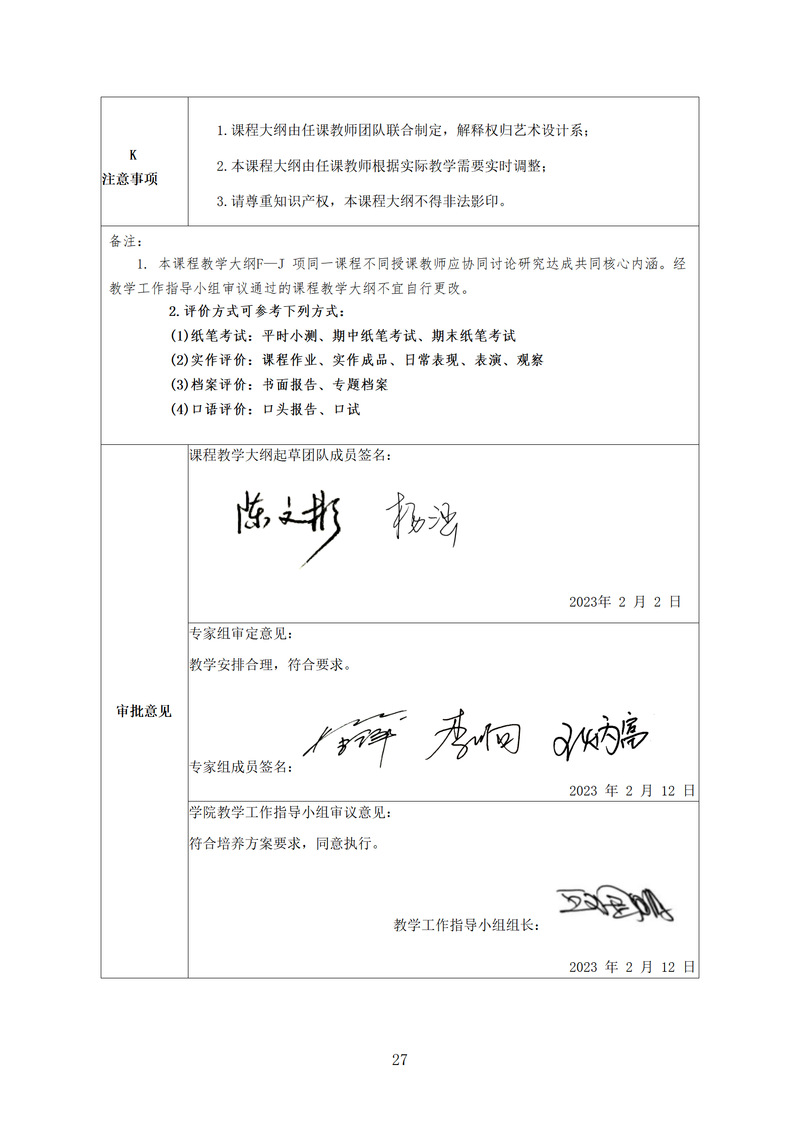 K
注意事项
1.课程大纲由任课教师团队联合制定，解释权归艺术设计系；
2.本课程大纲由任课教师根据实际教学需要实时调整；
3.请尊重知识产权，本课程大纲不得非法影印。
备注：
1. 本课程教学大纲F—J 项同一课程不同授课教师应协同讨论研究达成共同核心内涵。经
教学工作指导小组审议通过的课程教学大纲不宜自行更改。
2.评价方式可参考下列方式：
(1)纸笔考试：平时小测、期中纸笔考试、期末纸笔考试
(2)实作评价：课程作业、实作成品、日常表现、表演、观察
(3)档案评价：书面报告、专题档案
(4)口语评价：口头报告、口试
审批意见
课程教学大纲起草团队成员签名：
陈文彬
2023年 2 月 2 日
专家组审定意见：
教学安排合理，符合要求。
李响
专家组成员签名：
2023 年 2 月 12 日
学院教学工作指导小组审议意见：
符合培养方案要求，同意执行。
教学工作指导小组组长：
2023 年 2 月 12 日
27